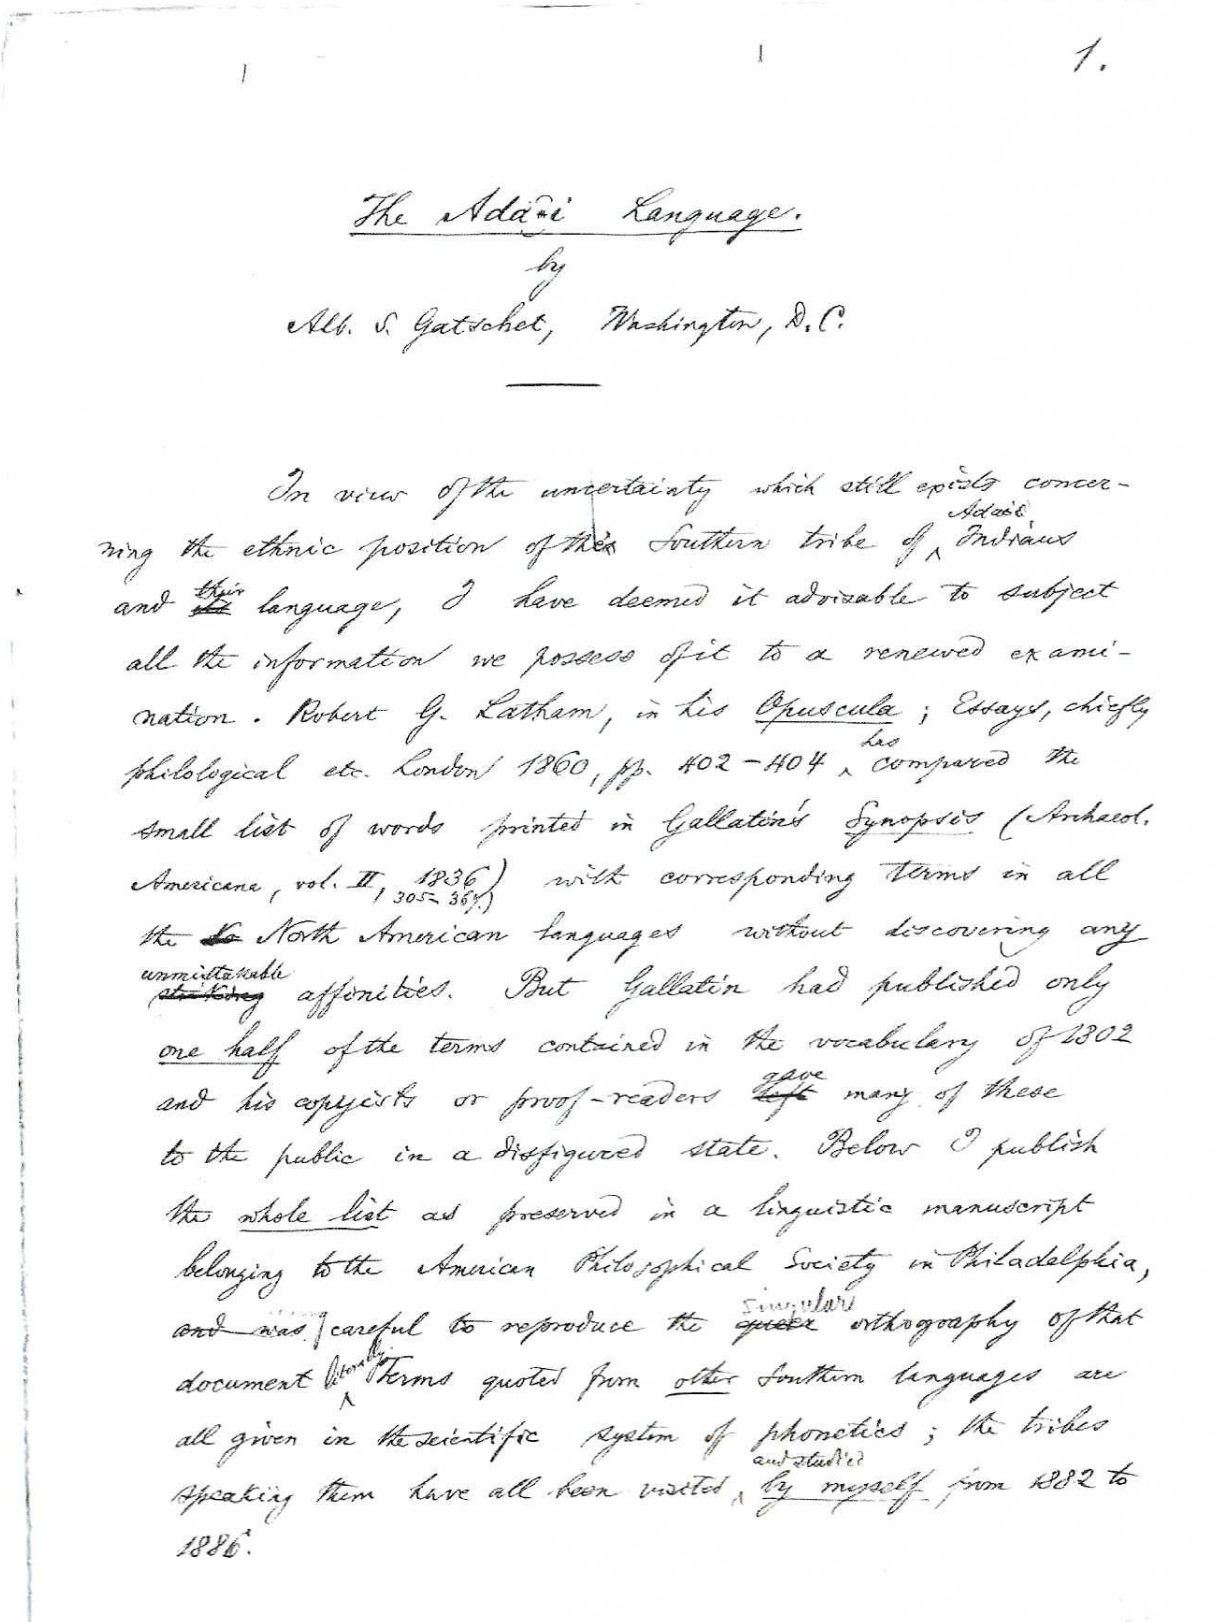 1.
The Adāi Language.
by
Alb. S. Gatschet, Washington, D.C.
In view of the uncertainty which still exists concer-
ning the ethnic position of the Southern tribe of Adāi Indians
and their language, I have deemed it advisable to subject
all the information we possess of it to a renewed exami-
nation. Robert G. Latham, in his Opuscula; Essays, chiefly
philological etc. London 1860, pp. 402-404 has compared the
small list of words printed in Gallatin's Synopsis (Archaeol.
Americana, vol. II, 1836)
305-367.)
with corresponding terms in all
the North American languages without discovering any
unmistakable striking affinities. But Gallatin had published only
one half of the terms contained in the vocabulary of 1802
and his copyists or proof-readers gave left many of these
to the public in a disfigured state. Below I publish
the whole list as preserved in a linguistic manuscript
belonging to the American Philosophical Society in Philadelphia,
and was careful to reproduce the singular queer orthography of that
document literally. Terms quoted from other Southern languages are
all given in the scientific system of phonetics; the tribes
speaking them have all been visited and studied by myself from 1882 to
1886.